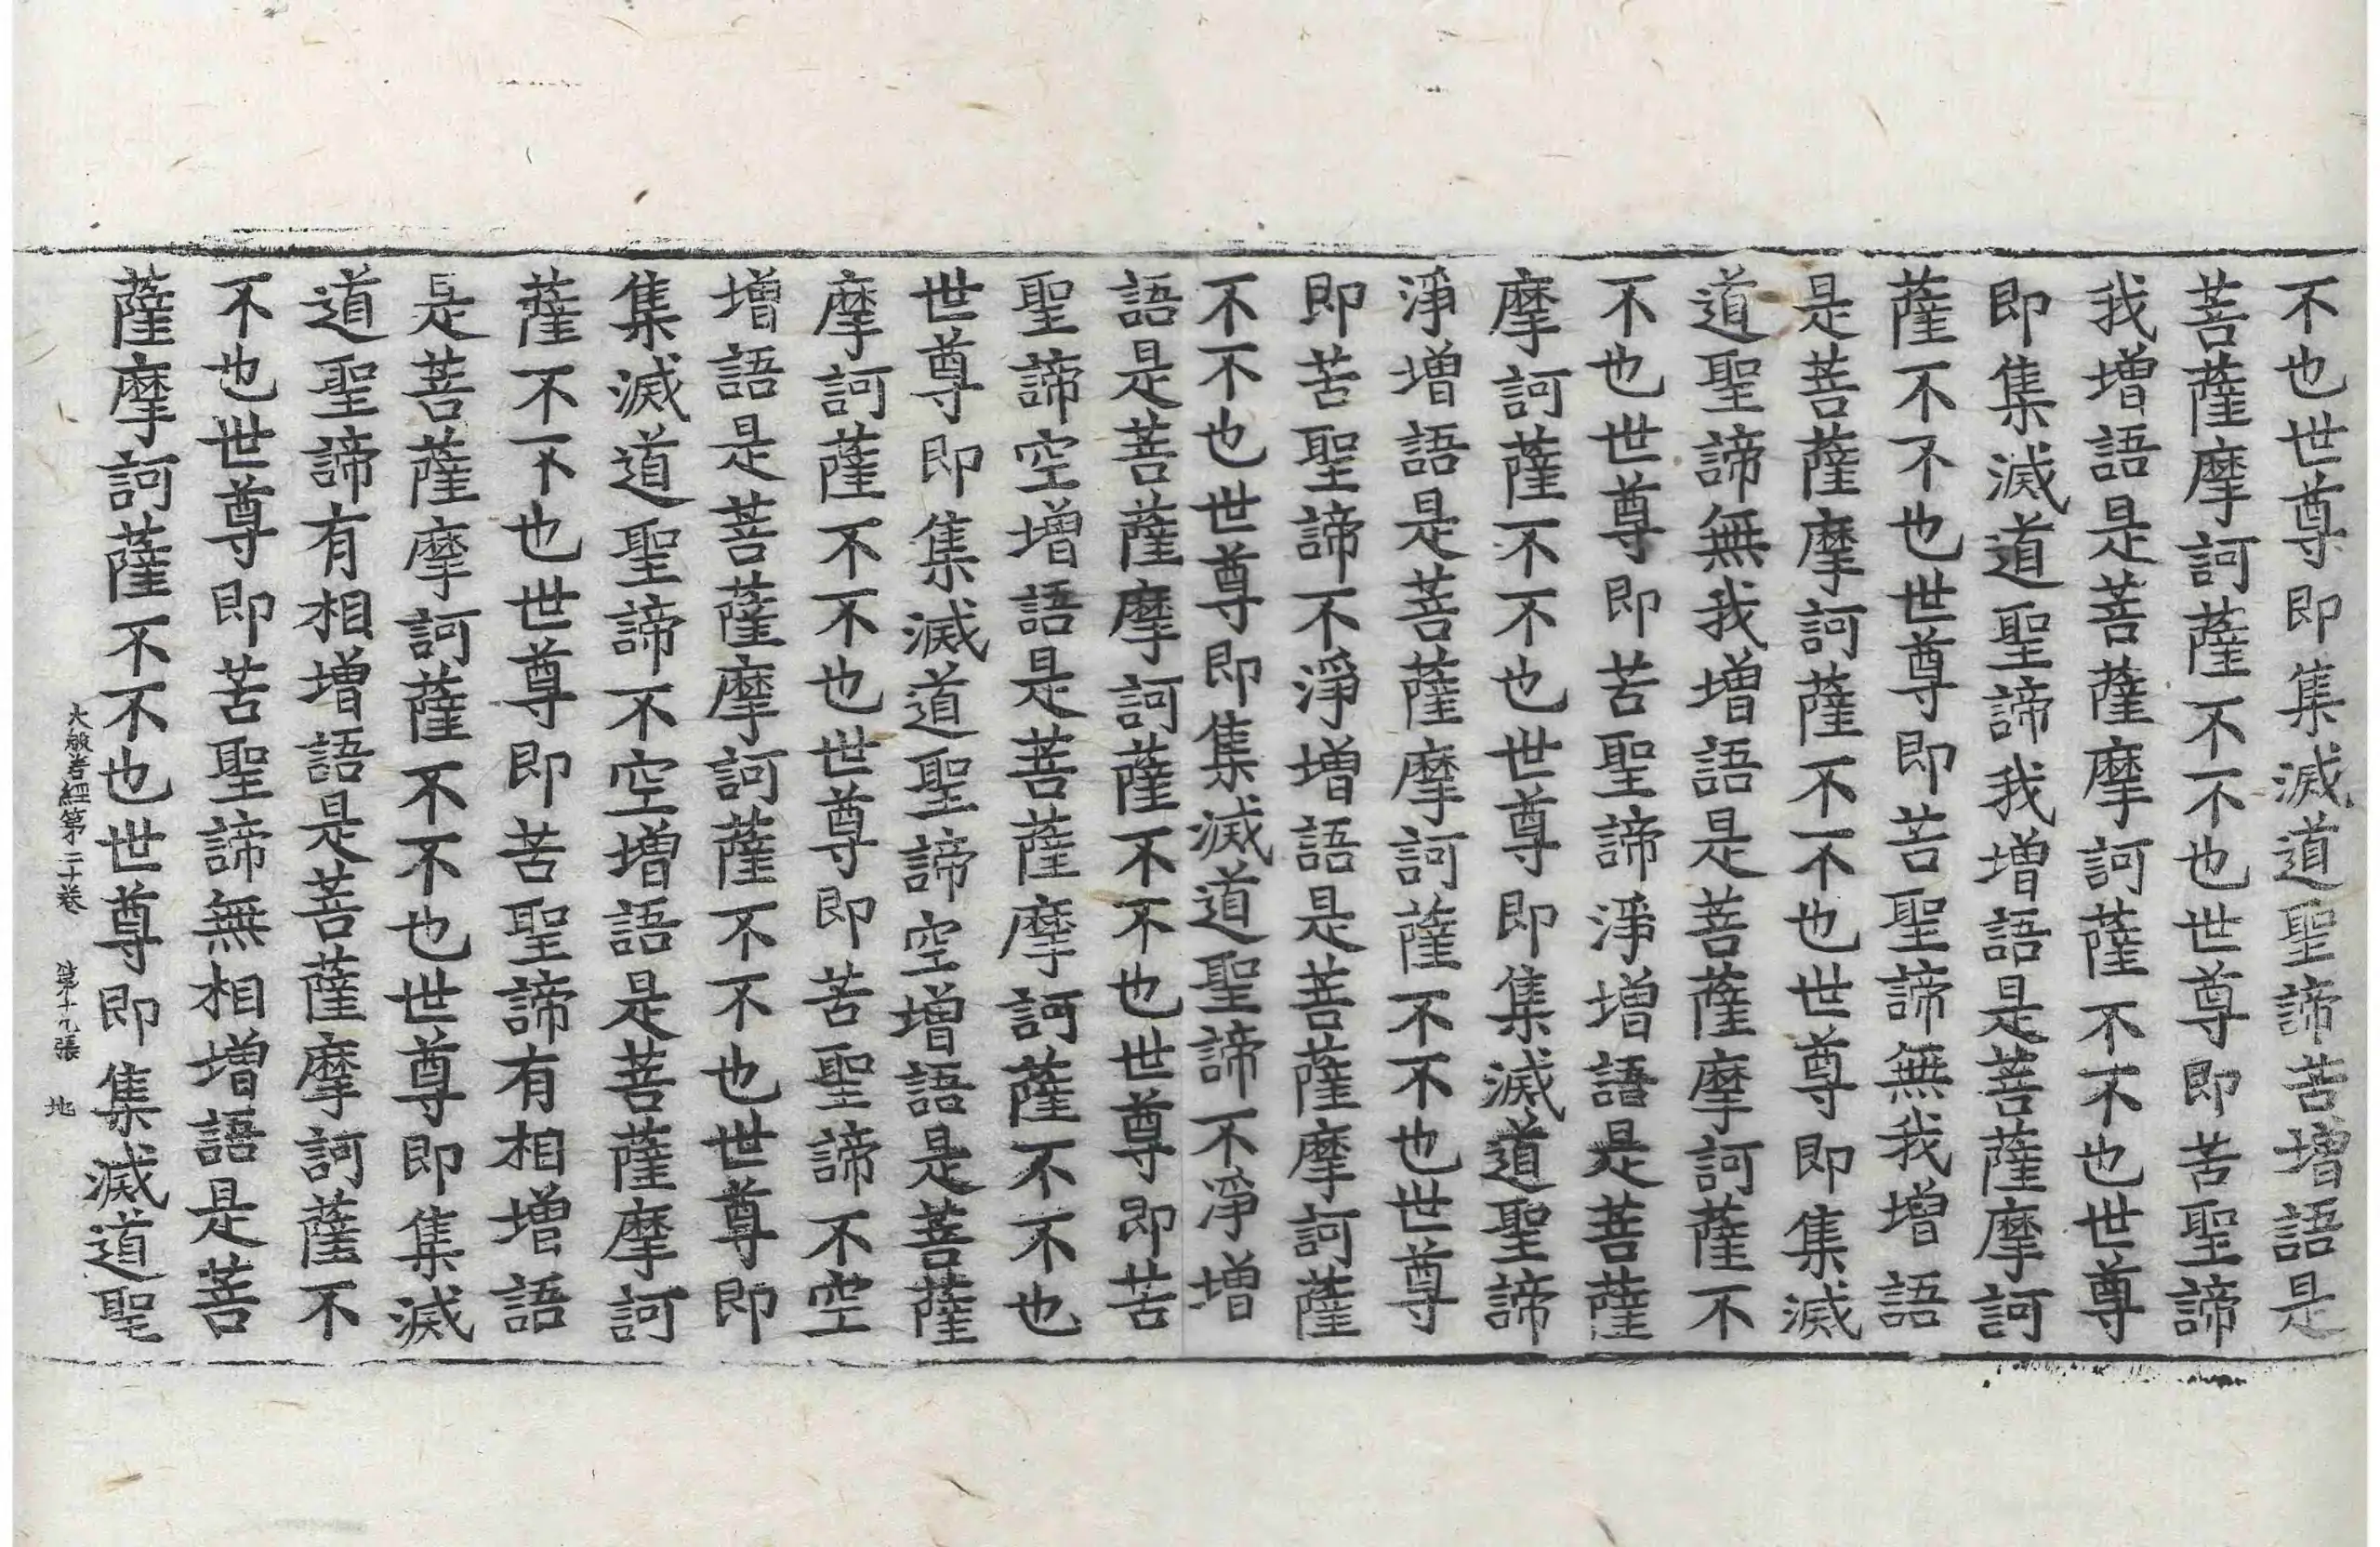 不也世尊即集滅道聖諦苦增語是
菩薩摩訶薩不不也世尊即苦聖諦
我增語是菩薩摩訶薩不不也世尊
即集滅道聖諦我增語是菩薩摩訶
薩不不也世尊即苦聖諦無我增語
是菩薩摩訶薩不不也世尊即集滅
道聖諦無我增語是菩薩摩訶薩不
不也世尊即苦聖諦淨增語是菩薩
摩訶薩不不也世尊即集滅道聖諦
淨增語是菩薩摩訶薩不不也世尊
即苦聖諦不淨增語是菩薩摩訶薩
不不也世尊即集滅道聖諦不淨增
語是菩薩摩訶薩不不也世尊即苦
聖諦空增語是菩薩摩訶薩不不也
世尊即集滅道聖諦空增語是菩薩
摩訶薩不不也世尊即苦聖諦不空
增語是菩薩摩訶薩不不也世尊即
集滅道聖諦不空增語是菩薩摩訶
薩不不也世尊即苦聖諦有相增語
是菩薩摩訶薩不不也世尊即集滅
道聖諦有相增語是菩薩摩訶薩不
不也世尊即苦聖諦無相增語是菩
薩摩訶薩不不也世尊即集滅道聖
大般若經第二十卷 第十九張 地